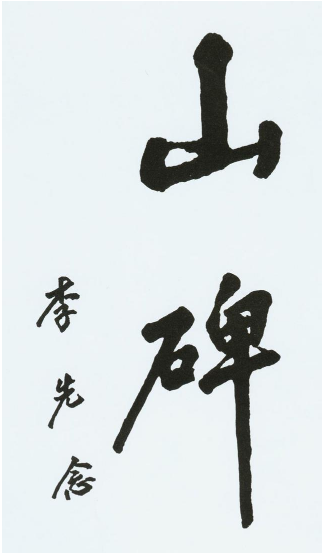 山碑
李先念